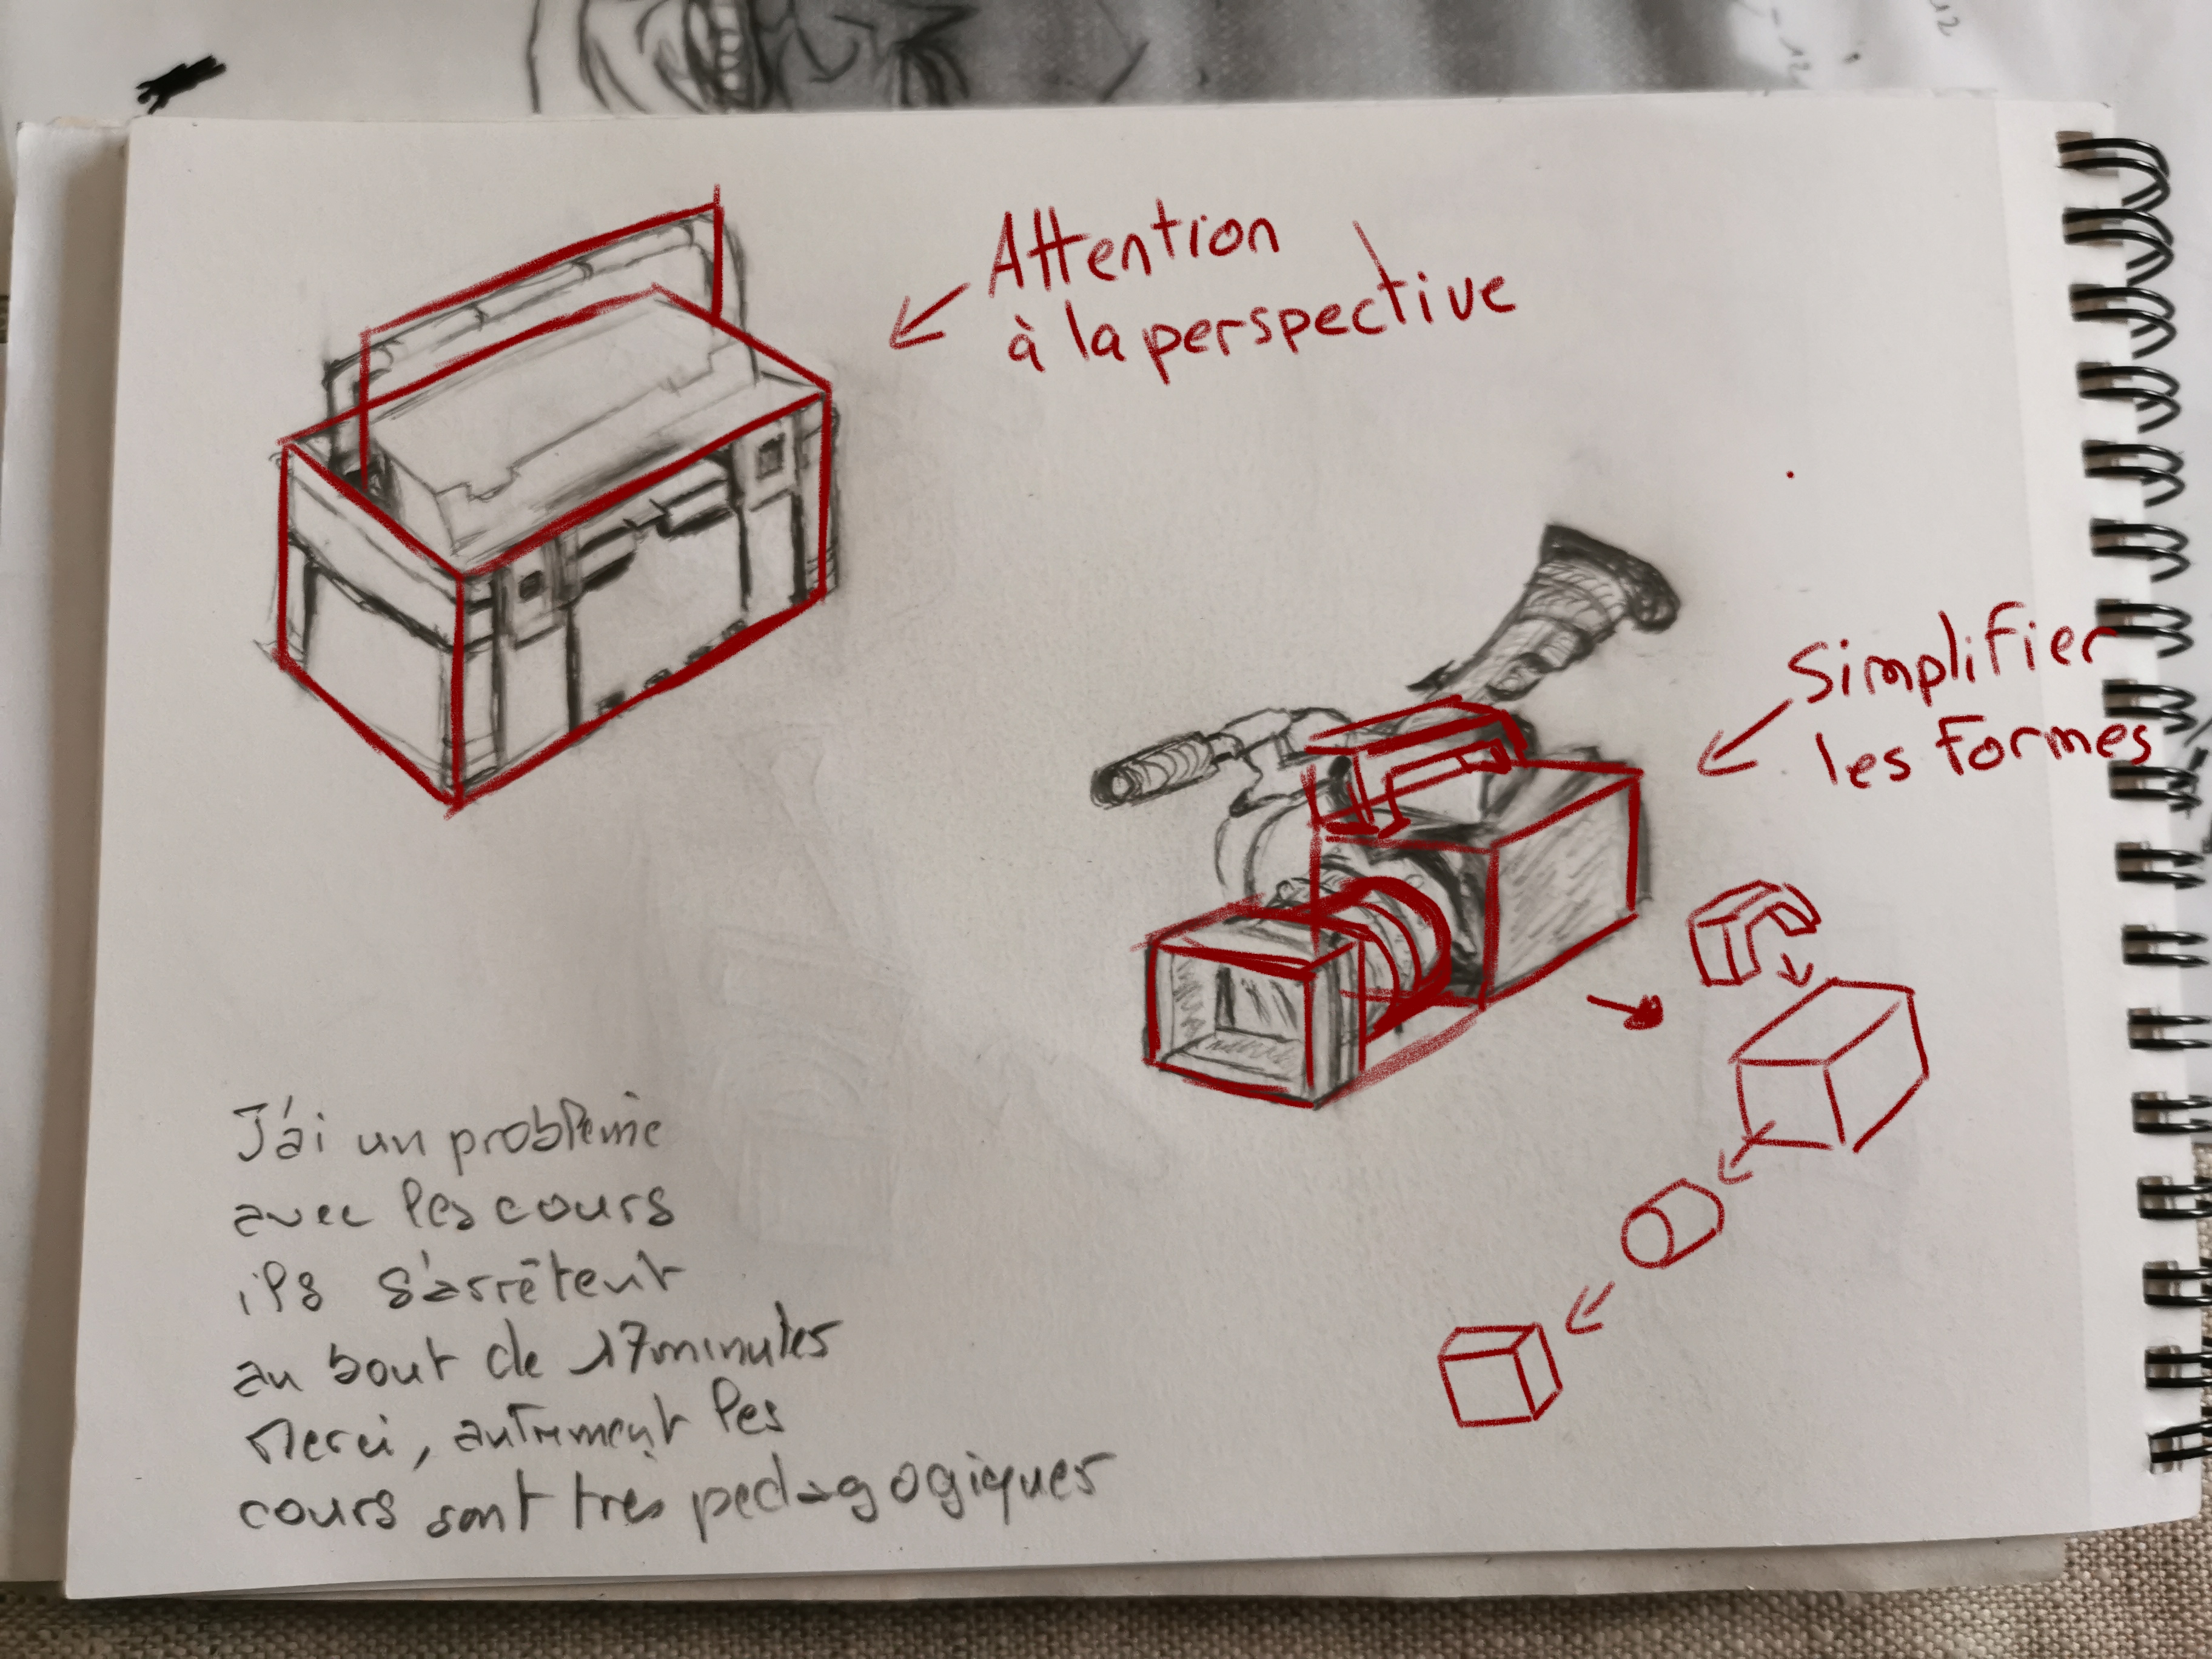 Attention
à la perspective
Simplifier
les formes
J'ai un problème
avec les cours
ils s'arrêtent
au bout de 17 minutes
Merci, autrement les
cours sont très pedagogiques